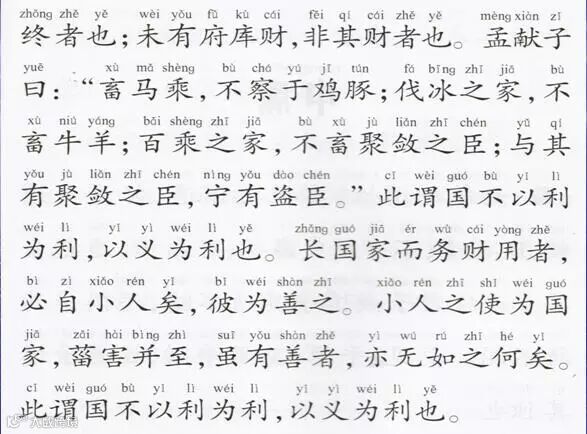 zhōng zhě yě wèi yǒu fǔ kù cái fēi qí cái zhě yě mèng xiàn zǐ
终者也；未有府库财，非其财者也。孟献子
yuē xù mǎ shèng bù chá yú jī tún fá bīng zhī jiā bù
曰：“畜马乘，不察于鸡豚；伐冰之家，不
xù niú yáng bǎi shèng zhī jiā bù xù jù liǎn zhī chén yǔ qí
畜牛羊；百乘之家，不畜聚敛之臣；与其
yǒu jù liǎn zhī chén nìng yǒu dào chén cǐ wèi guó bù yǐ lì
有聚敛之臣，宁有盗臣。”此谓国不以利
wéi lì yǐ yì wéi lì yě zhǎng guó jiā ér wù cái yòng zhě
为利，以义为利也。长国家而务财用者，
bì zì xiǎo rén yǐ bǐ wéi shàn zhī xiǎo rén zhī shǐ wéi guó
必自小人矣，彼为善之。小人之使为国
jiā zāi hài bìng zhì suī yǒu shàn zhě yì wú rú zhī hé yǐ
家，菑害并至，虽有善者，亦无如之何矣。
cǐ wèi guó bù yǐ lì wéi lì yǐ yì wéi lì yě
此谓国不以利为利，以义为利也。